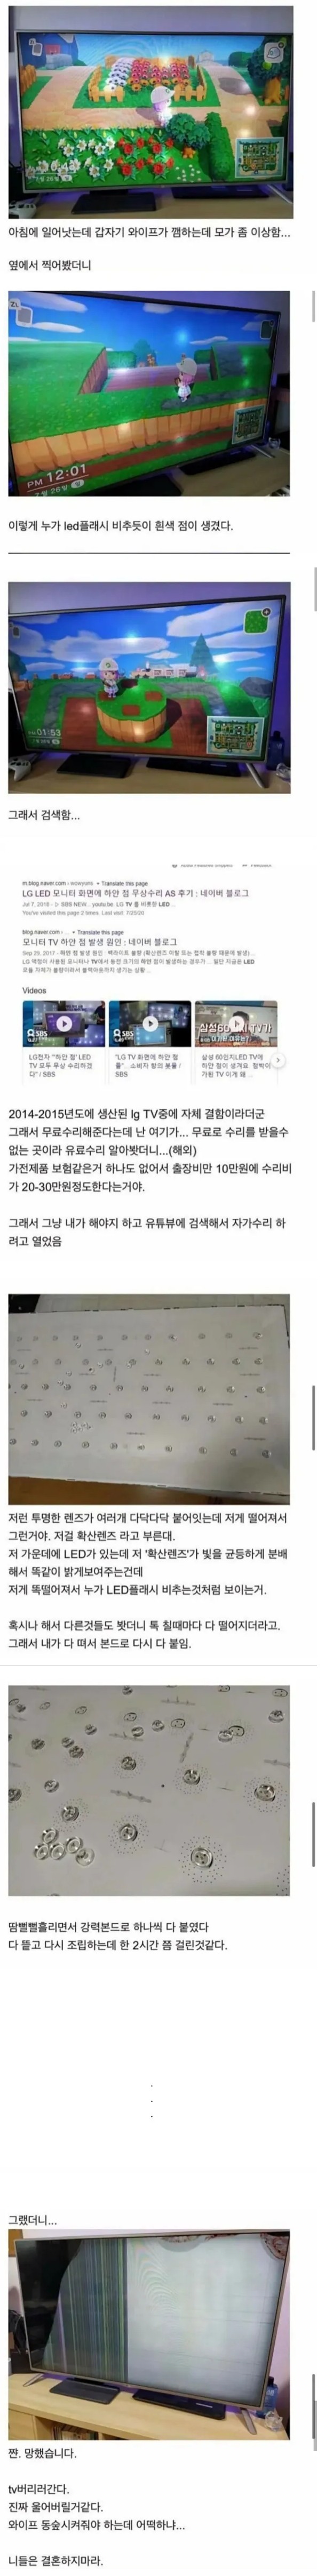 아침에 일어낫는데 갑자기 와이프가 껨하는데 모가 좀 이상함...
옆에서 찍어봤더니
PM 12:01
7월 26일
이렇게 누가 led플래시 비추듯이 흰색 점이 생겼다.
01:53
그래서 검색함...
Translate this page
LG LED 모니터 화면에 하얀 점 무상수리 AS 후기 : 네이버 블로그
You've visited this page 2 times. Last visit: 7/25/20
blog.naver.com › ... Translate this page
모니터 TV 하얀 점 발생 원인 : 네이버 블로그
Videos
SBS
SBS
LG전자 "'하얀 점' LED TV 모두 무상 수리하겠다" / SBS
"LG TV 화면에 하얀 점들"...소비자 항의 봇물 / SBS
삼성 60인치LED TV에 하얀 점이 생겨요.
2014-2015년도에 생산된 lg TV중에 자체 결함이라더군
그래서 무료수리해준다는데 난 여기가... 무료로 수리를 받을수
없는 곳이라 유료수리 알아봣더니...(해외)
가전제품 보험같은거 하나도 없어서 출장비만 10만원에 수리비
가 20-30만원정도한다는거야.
그래서 그냥 내가 해야지 하고 유튜뷰에 검색해서 자가수리 하
려고 열었음
저런 투명한 렌즈가 여러개 다닥다닥 붙어잇는데 저게 떨어져서
그런거야. 저걸 확산렌즈 라고 부른대.
저 가운데에 LED가 있는데 저 '확산렌즈'가 빛을 균등하게 분배
해서 똑같이 밝게보여주는건데
저게 똑떨어져서 누가 LED플래시 비추는것처럼 보이는거.
혹시나 해서 다른것들도 봣더니 톡 칠때마다 다 떨어지더라고.
그래서 내가 다 떠서 본드로 다시 다 붙임.
땀뻘뻘흘리면서 강력본드로 하나씩 다 붙였다
다 뜯고 다시 조립하는데 한 2시간 쯤 걸린것같다.
.
.
.
그랬더니...
짠. 망했습니다.
tv버리러간다.
진짜 울어버릴거같다.
와이프 동숲시켜줘야 하는데 어떡하냐...
니들은 결혼하지마라.